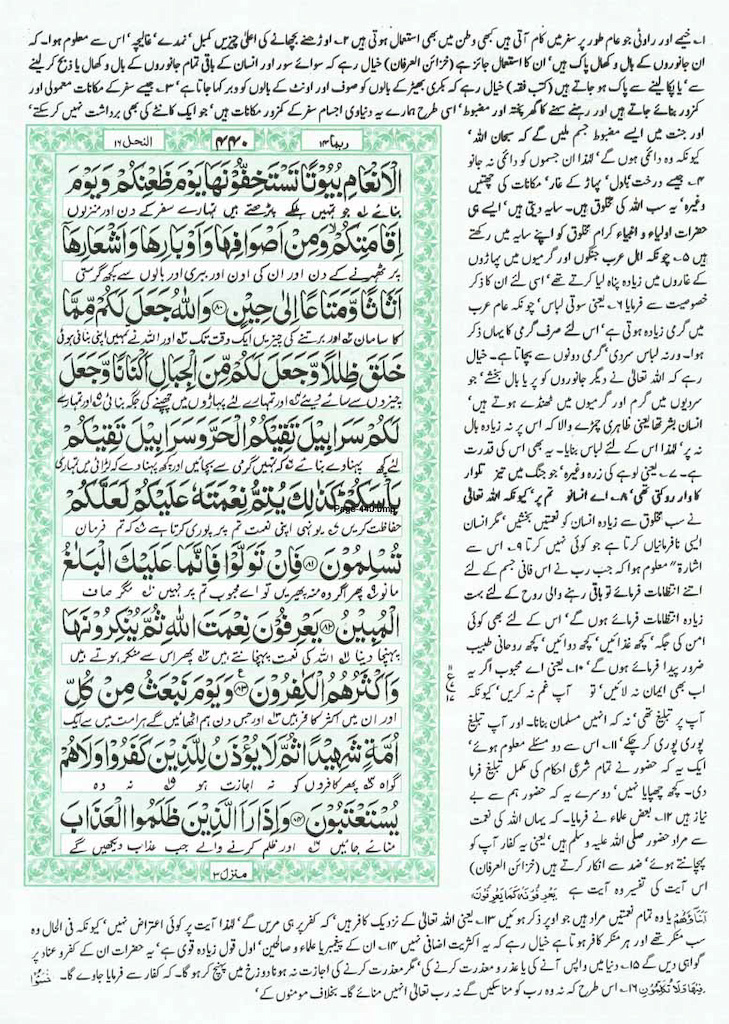 ۱۔ خیمے اور راوٹی جو عام طور پر سفر میں کام آتی ہیں کبھی وطن میں بھی استعمال ہوتی ہیں ۲۔ اوڑھنے بچھانے کی اعلیٰ چیزیں کمبل، نمدے، غالیچہ، اس سے معلوم ہوا۔ کہ
ان جانوروں کے بال و کھال پاک ہیں، ان کا استعمال جائز ہے (خزائن العرفان) خیال رہے کہ سوائے سور اور انسان کے باقی تمام جانوروں کے بال و کھال یا ذبح کر لینے
سے، یا پکا لینے سے پاک ہو جاتے ہیں (کتب فقہ) خیال رہے کہ بکری بھیڑ کے بالوں کو صوف اور اونٹ کے بالوں کو وبر کہا جاتا ہے، ۳۔ جیسے سفر کے مکانات معمولی اور
کمزور بنائے جاتے ہیں اور رہنے سہنے کا گھر پختہ اور مضبوط، اسی طرح ہمارے یہ دنیاوی اجسام سفر کے کمزور مکانات ہیں، جو ایک کانٹے کی بھی برداشت نہیں کر سکتے،
اور جنت میں ایسے مضبوط جسم ملیں گے کہ سبحان اللہ،
کیونکہ وہ دائمی ہوں گے، لہٰذا ان جسموں کو دائمی نہ جانو
۴۔ جیسے درخت، بادل، پہاڑ کے غار، مکانات کی چھتیں
وغیرہ، یہ سب اللہ کی مخلوق ہیں۔ سایہ دیتی ہیں، ایسے ہی
حضرات اولیاء و انبیاء کرام مخلوق کو اپنے سایہ میں رکھتے
ہیں ۵۔ چونکہ اہل عرب جنگوں اور گرمیوں میں پہاڑوں
کے غاروں میں زیادہ پناہ لیا کرتے تھے، اسی لئے ان کا ذکر
خصوصیت سے فرمایا ۶۔ یعنی سوتی لباس، چونکہ عام عرب
میں گرمی زیادہ ہوتی ہے، اس لئے صرف گرمی کا یہاں ذکر
ہوا۔ ورنہ لباس سردی، گرمی دونوں سے بچاتا ہے۔ خیال
رہے کہ اللہ تعالیٰ نے دیگر جانوروں کو پر یا بال بخشے، جو
سردیوں میں گرم اور گرمیوں میں ٹھنڈے ہوتے ہیں،
انسان بشر تھا یعنی ظاہری چمڑے والا کہ اس پر نہ زیادہ بال
نہ پر، لہٰذا اس کے لئے لباس بنایا۔ یہ بھی اس کی قدرت
ہے۔ ۷۔ یعنی لوہے کی زرہ وغیرہ، جو جنگ میں تیز تلوار
کا وار روکتی تھی، ۸۔ اے انسانو تم پر، کیونکہ اللہ تعالیٰ
نے سب مخلوق سے زیادہ انسان کو نعمتیں بخشیں، مگر انسان
ایسی نافرمانیاں کرتا ہے جو کوئی نہیں کرتا ۹۔ اس سے
اشارۃً معلوم ہوا کہ جب رب نے اس فانی جسم کے لئے
اتنے انتظامات فرمائے تو باقی رہنے والی روح کے لئے بہت
زیادہ انتظامات فرمائے ہوں گے، اس کے لئے بھی کوئی
امن کی جگہ، کچھ غذائیں، کچھ دوائیں، کچھ روحانی طبیب
ضرور پیدا فرمائے ہوں گے، ۱۰۔ یعنی اے محبوب اگر یہ
اب بھی ایمان نہ لائیں، تو آپ غم نہ کریں، کیونکہ
آپ پر تبلیغ تھی، نہ کہ انہیں مسلمان بنانا۔ اور آپ تبلیغ
پوری پوری کر چکے، ۱۱۔ اس سے دو مسئلے معلوم ہوئے،
ایک یہ کہ حضور نے تمام شرعی احکام کی مکمل تبلیغ فرما
دی۔ کچھ چھپایا نہیں، دوسرے یہ کہ حضور ہم سے بے
نیاز ہیں ۱۲۔ بعض علماء نے فرمایا۔ کہ یہاں اللہ کی نعمت
سے مراد حضور صلی اللہ علیہ وسلم ہیں، یعنی یہ کفار آپ کو
پہچانتے ہوئے، ضد سے انکار کرتے ہیں (خزائن العرفان)
اس آیت کی تفسیر وہ آیت ہے یَعْرِفُوْنَهٗ كَمَا یَعْرِفُوْنَ
ربما ۱۴ ۴۴۰ النحل ۱۶
الْاَنْعَامِ بُیُوْتًا تَسْتَخِفُّوْنَهَا یَوْمَ ظَعْنِكُمْ وَ یَوْمَ
بنائے ۱ جو تمہیں ہلکے پڑتے ہیں تمہارے سفر کے دن اور منزلوں
اِقَامَتِكُمْ وَ مِنْ اَصْوَافِهَا وَ اَوْبَارِهَا وَ اَشْعَارِهَاۤ
پر ٹھہرنے کے دن اور ان کی اون اور ببری اور بالوں سے کچھ گرستی
اَثَاثًا وَّ مَتَاعًا اِلٰى حِیْنٍ ﴿۸۰﴾ وَ اللّٰهُ جَعَلَ لَكُمْ مِّمَّا
کا سامان ۲ اور برتنے کی چیزیں ایک وقت تک ۳ اور اللہ نے تمہیں اپنی بنائی ہوئی
خَلَقَ ظِلٰلًا وَّ جَعَلَ لَكُمْ مِّنَ الْجِبَالِ اَكْنَانًا وَّ جَعَلَ
چیزوں سے سائے دیئے ۴ اور تمہارے لئے پہاڑوں میں چھپنے کی جگہ بنائی ۵ اور تمہارے
لَكُمْ سَرَابِیْلَ تَقِیْكُمُ الْحَرَّ وَ سَرَابِیْلَ تَقِیْكُمْ
لئے کچھ پہناوے بنائے ۶ کہ تمہیں گرمی سے بچائیں اور کچھ پہناوے کہ لڑائی میں تمہاری
بَاْسَكُمْ ؕ كَذٰلِكَ یُتِمُّ نِعْمَتَهٗ عَلَیْكُمْ لَعَلَّكُمْ
Page-440.bmp
حفاظت کریں ۷ یونہی اپنی نعمت تم پر پوری کرتا ہے ۸ کہ تم فرمان
تُسْلِمُوْنَ ﴿۸۱﴾ فَاِنْ تَوَلَّوْا فَاِنَّمَا عَلَیْكَ الْبَلٰغُ
مانو ۹ پھر اگر وہ منہ پھیریں تو اے محبوب تم پر نہیں ۱۰ مگر صاف
الْمُبِیْنُ ﴿۸۲﴾ یَعْرِفُوْنَ نِعْمَتَ اللّٰهِ ثُمَّ یُنْكِرُوْنَهَا
پہنچا دینا ۱۱ اللہ کی نعمت پہچانتے ہیں ۱۲ پھر اس سے منکر ہوتے ہیں
وَ اَكْثَرُهُمُ الْكٰفِرُوْنَ ﴿۸۳﴾ وَ یَوْمَ نَبْعَثُ مِنْ كُلِّ
اور ان میں اکثر کافر ہیں ۱۳ اور جس دن ہم اٹھائیں گے ہر امت میں سے ایک
اُمَّةٍ شَهِیْدًا ثُمَّ لَا یُؤْذَنُ لِلَّذِیْنَ كَفَرُوْا وَ لَا هُمْ
گواہ ۱۴ پھر کافروں کو نہ اجازت ہو ۱۵ نہ وہ
یُسْتَعْتَبُوْنَ ﴿۸۴﴾ وَ اِذَا رَاَ الَّذِیْنَ ظَلَمُوا الْعَذَابَ
منائے جائیں ۱۶ اور ظلم کرنے والے جب عذاب دیکھیں گے
منزل ۳
اَبْنَآءَهُمْ یا وہ تمام نعمتیں مراد ہیں جو اوپر ذکر ہوئیں ۱۳۔ یعنی اللہ تعالیٰ کے نزدیک کافر ہیں، کہ کفر پر ہی مریں گے، لہٰذا آیت پر کوئی اعتراض نہیں، کیونکہ فی الحال وہ
سب منکر تھے اور ہر منکر کافر ہوتا ہے خیال رہے کہ یہ اکثریت اضافی نہیں ۱۴۔ ان کے پیغمبر یا علماء و صالحین، اول قول زیادہ قوی ہے، یہ حضرات ان کے کفر و عناد پر
گواہی دیں گے ۱۵۔ دنیا میں واپس آنے کی یا عذر و معذرت کرنے کی، مگر معذرت کرنے کی اجازت نہ ہونا دوزخ میں پہنچ کر ہو گا۔ کہ کفار سے فرمایا جاوے گا۔ اخْسَـُٔوْا
فِیْهَا وَ لَا تُكَلِّمُوْنِ ۱۶۔ اس طرح کہ نہ وہ رب کو منا سکیں گے نہ رب تعالیٰ انہیں منائے گا۔ بخلاف مومنوں کے،